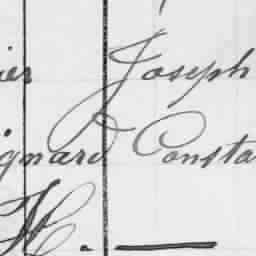 ier Joseph
ignard Consta
H. —